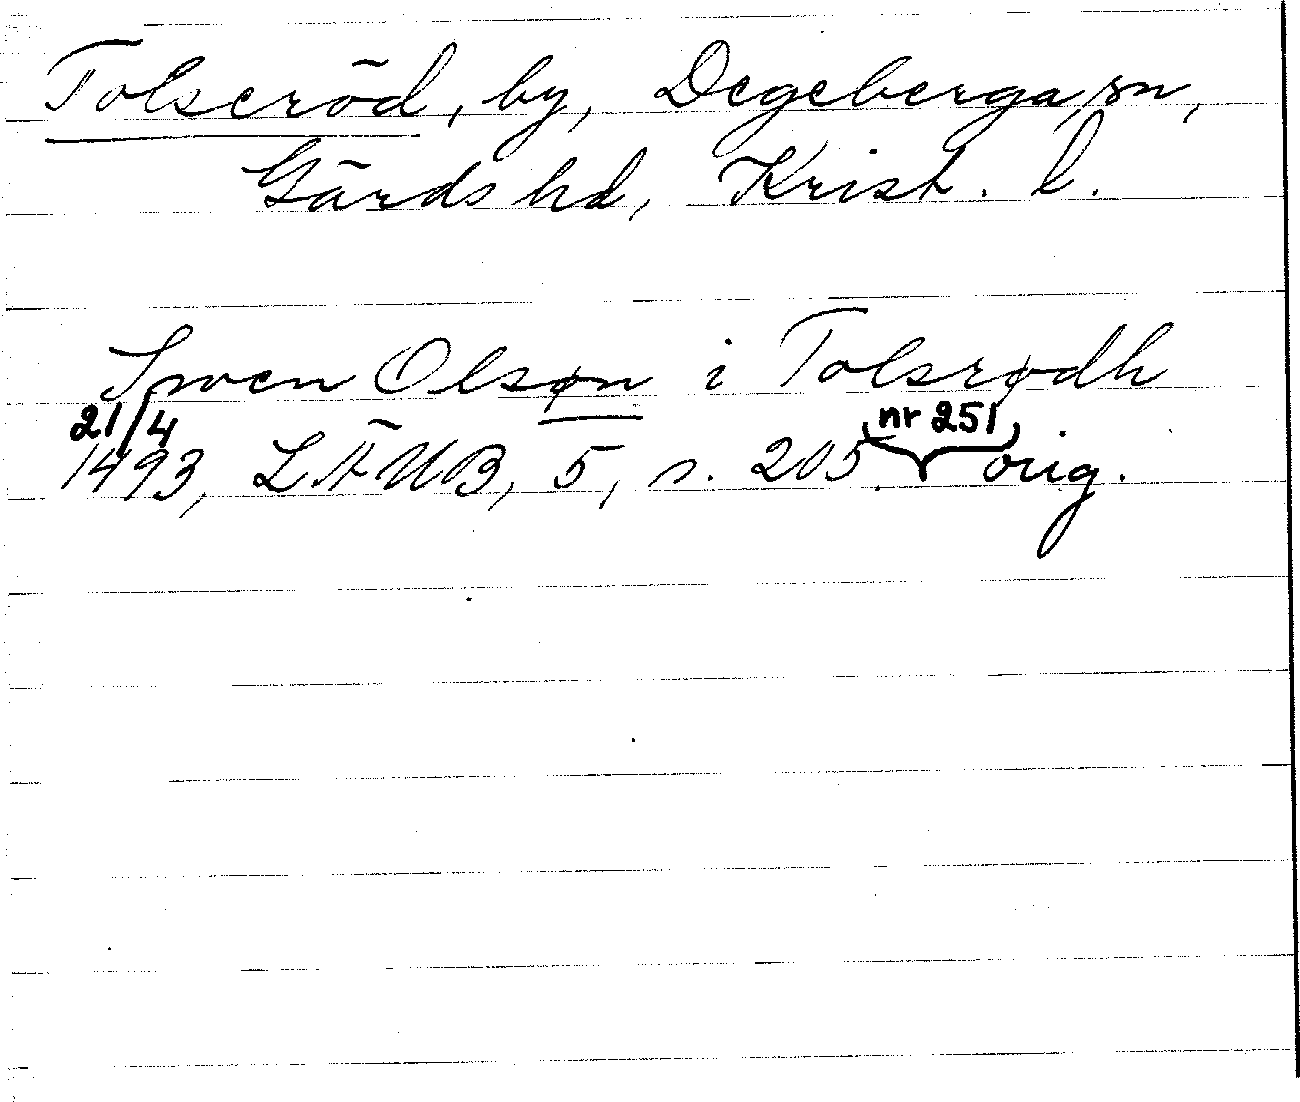 Tolseröd, by, Degeberga sn,
Gärds hd, Krist. l.
Swen Olsøn i Tolsrødh
21/4 1493, LÄUB, 5, s. 205, nr 251, orig.